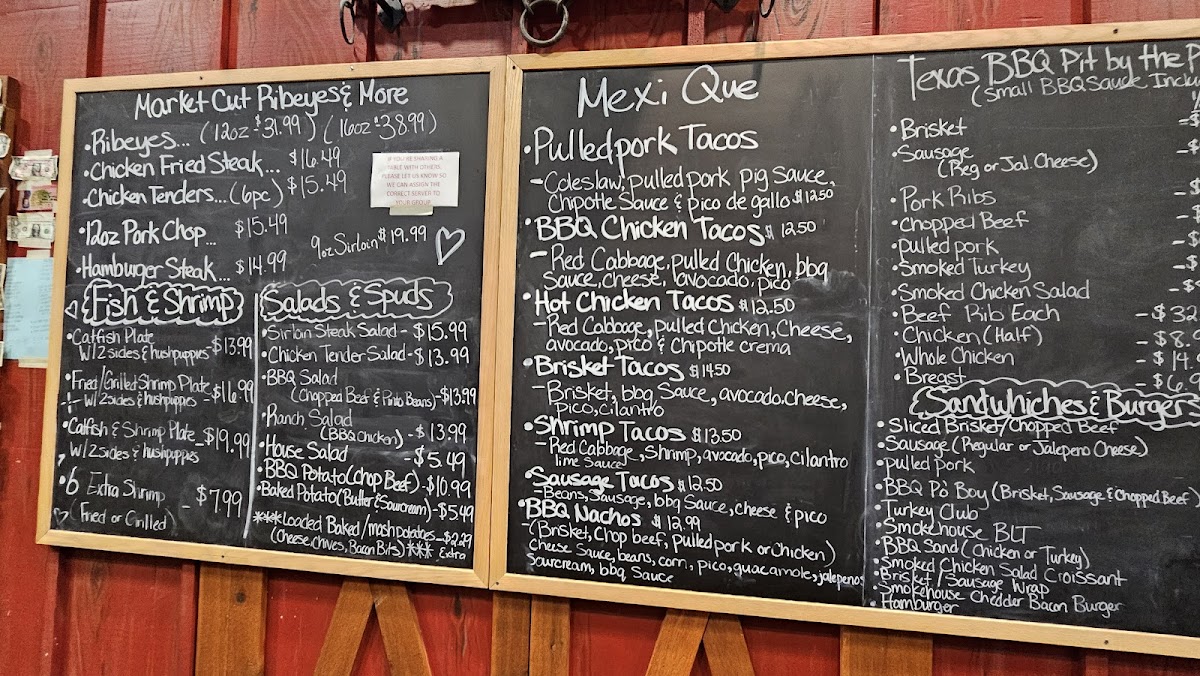 Market Cut Ribeyes & More
•Ribeyes... (12oz $31.99) (16oz $38.99)
•Chicken Fried Steak... $16.49
•Chicken Tenders... (6pc) $15.49
•12oz Pork Chop... $15.49
9oz Sirloin $19.99
•Hamburger Steak... $14.99
IF YOU'RE SHARING A
TABLE WITH OTHERS,
PLEASE LET US KNOW SO
WE CAN ASSIGN THE
CORRECT SERVER TO
YOUR GROUP
Fish & Shrimp
•Catfish Plate
W/2 sides & hushpuppies -$13.99
•Fried/Grilled Shrimp Plate
W/2 sides & hushpuppies -$16.99
•Catfish & Shrimp Plate
W/2 sides & hushpuppies -$19.99
•6 Extra Shrimp
(Fried or Grilled) - $7.99
Salads & Spuds
•Sirloin Steak Salad - $15.99
•Chicken Tender Salad - $13.99
•BBQ Salad
(Chopped Beef & Pinto Beans) -$13.99
•Ranch Salad
(BBQ Chicken) - $13.99
•House Salad - $5.49
•BBQ Potato (Chop Beef) -$10.99
•Baked Potato (Butter & Sourcream) -$5.49
***Loaded Baked/mash potatoes -$2.29
(Cheese, chives, Bacon Bits) *** Extra
Mexi Que
•Pulled pork Tacos
-Coleslaw, pulled pork pig Sauce,
Chipotle Sauce & pico de gallo $12.50
•BBQ Chicken Tacos $12.50
-Red Cabbage, pulled Chicken, bbq
Sauce, cheese, avocado, pico
•Hot Chicken Tacos $12.50
-Red Cabbage, pulled Chicken, Cheese,
avocado, pico & Chipotle crema
•Brisket Tacos $14.50
-Brisket, bbq Sauce, avocado, cheese,
pico, cilantro
•Shrimp Tacos $13.50
-Red Cabbage, Shrimp, avocado, pico, cilantro
lime Sauce
•Sausage Tacos $12.50
-Beans, Sausage, bbq Sauce, cheese & pico
•BBQ Nachos $12.99
-(Brisket, Chop beef, Pulled pork or Chicken)
Cheese Sauce, beans, corn, pico, guacamole, jalepenos
Sourcream, bbq Sauce
Texas BBQ Pit by the
(Small BBQ Sauce
•Brisket -$
•Sausage -$
(Reg or Jal. Cheese)
•Pork Ribs
•Chopped Beef
•pulled pork
•Smoked Turkey
•Smoked Chicken Salad
•Beef Rib Each -$32
•Chicken (Half) -$8.
•Whole Chicken -$14.
•Breast -$6.9
Sandwhiches & Burgers
•Sliced Brisket/Chopped Beef
•Sausage (Regular or Jalepeno Cheese)
•pulled Pork
•BBQ Po' Boy (Brisket, Sausage & Chopped Beef
•Turkey Club
•Smokehouse BLT
•BBQ Sand (Chicken or Turkey)
•Smoked Chicken Salad Croissant
•Brisket/Sausage Wrap
•Smokehouse Chedder Bacon Burger
•Hamburger